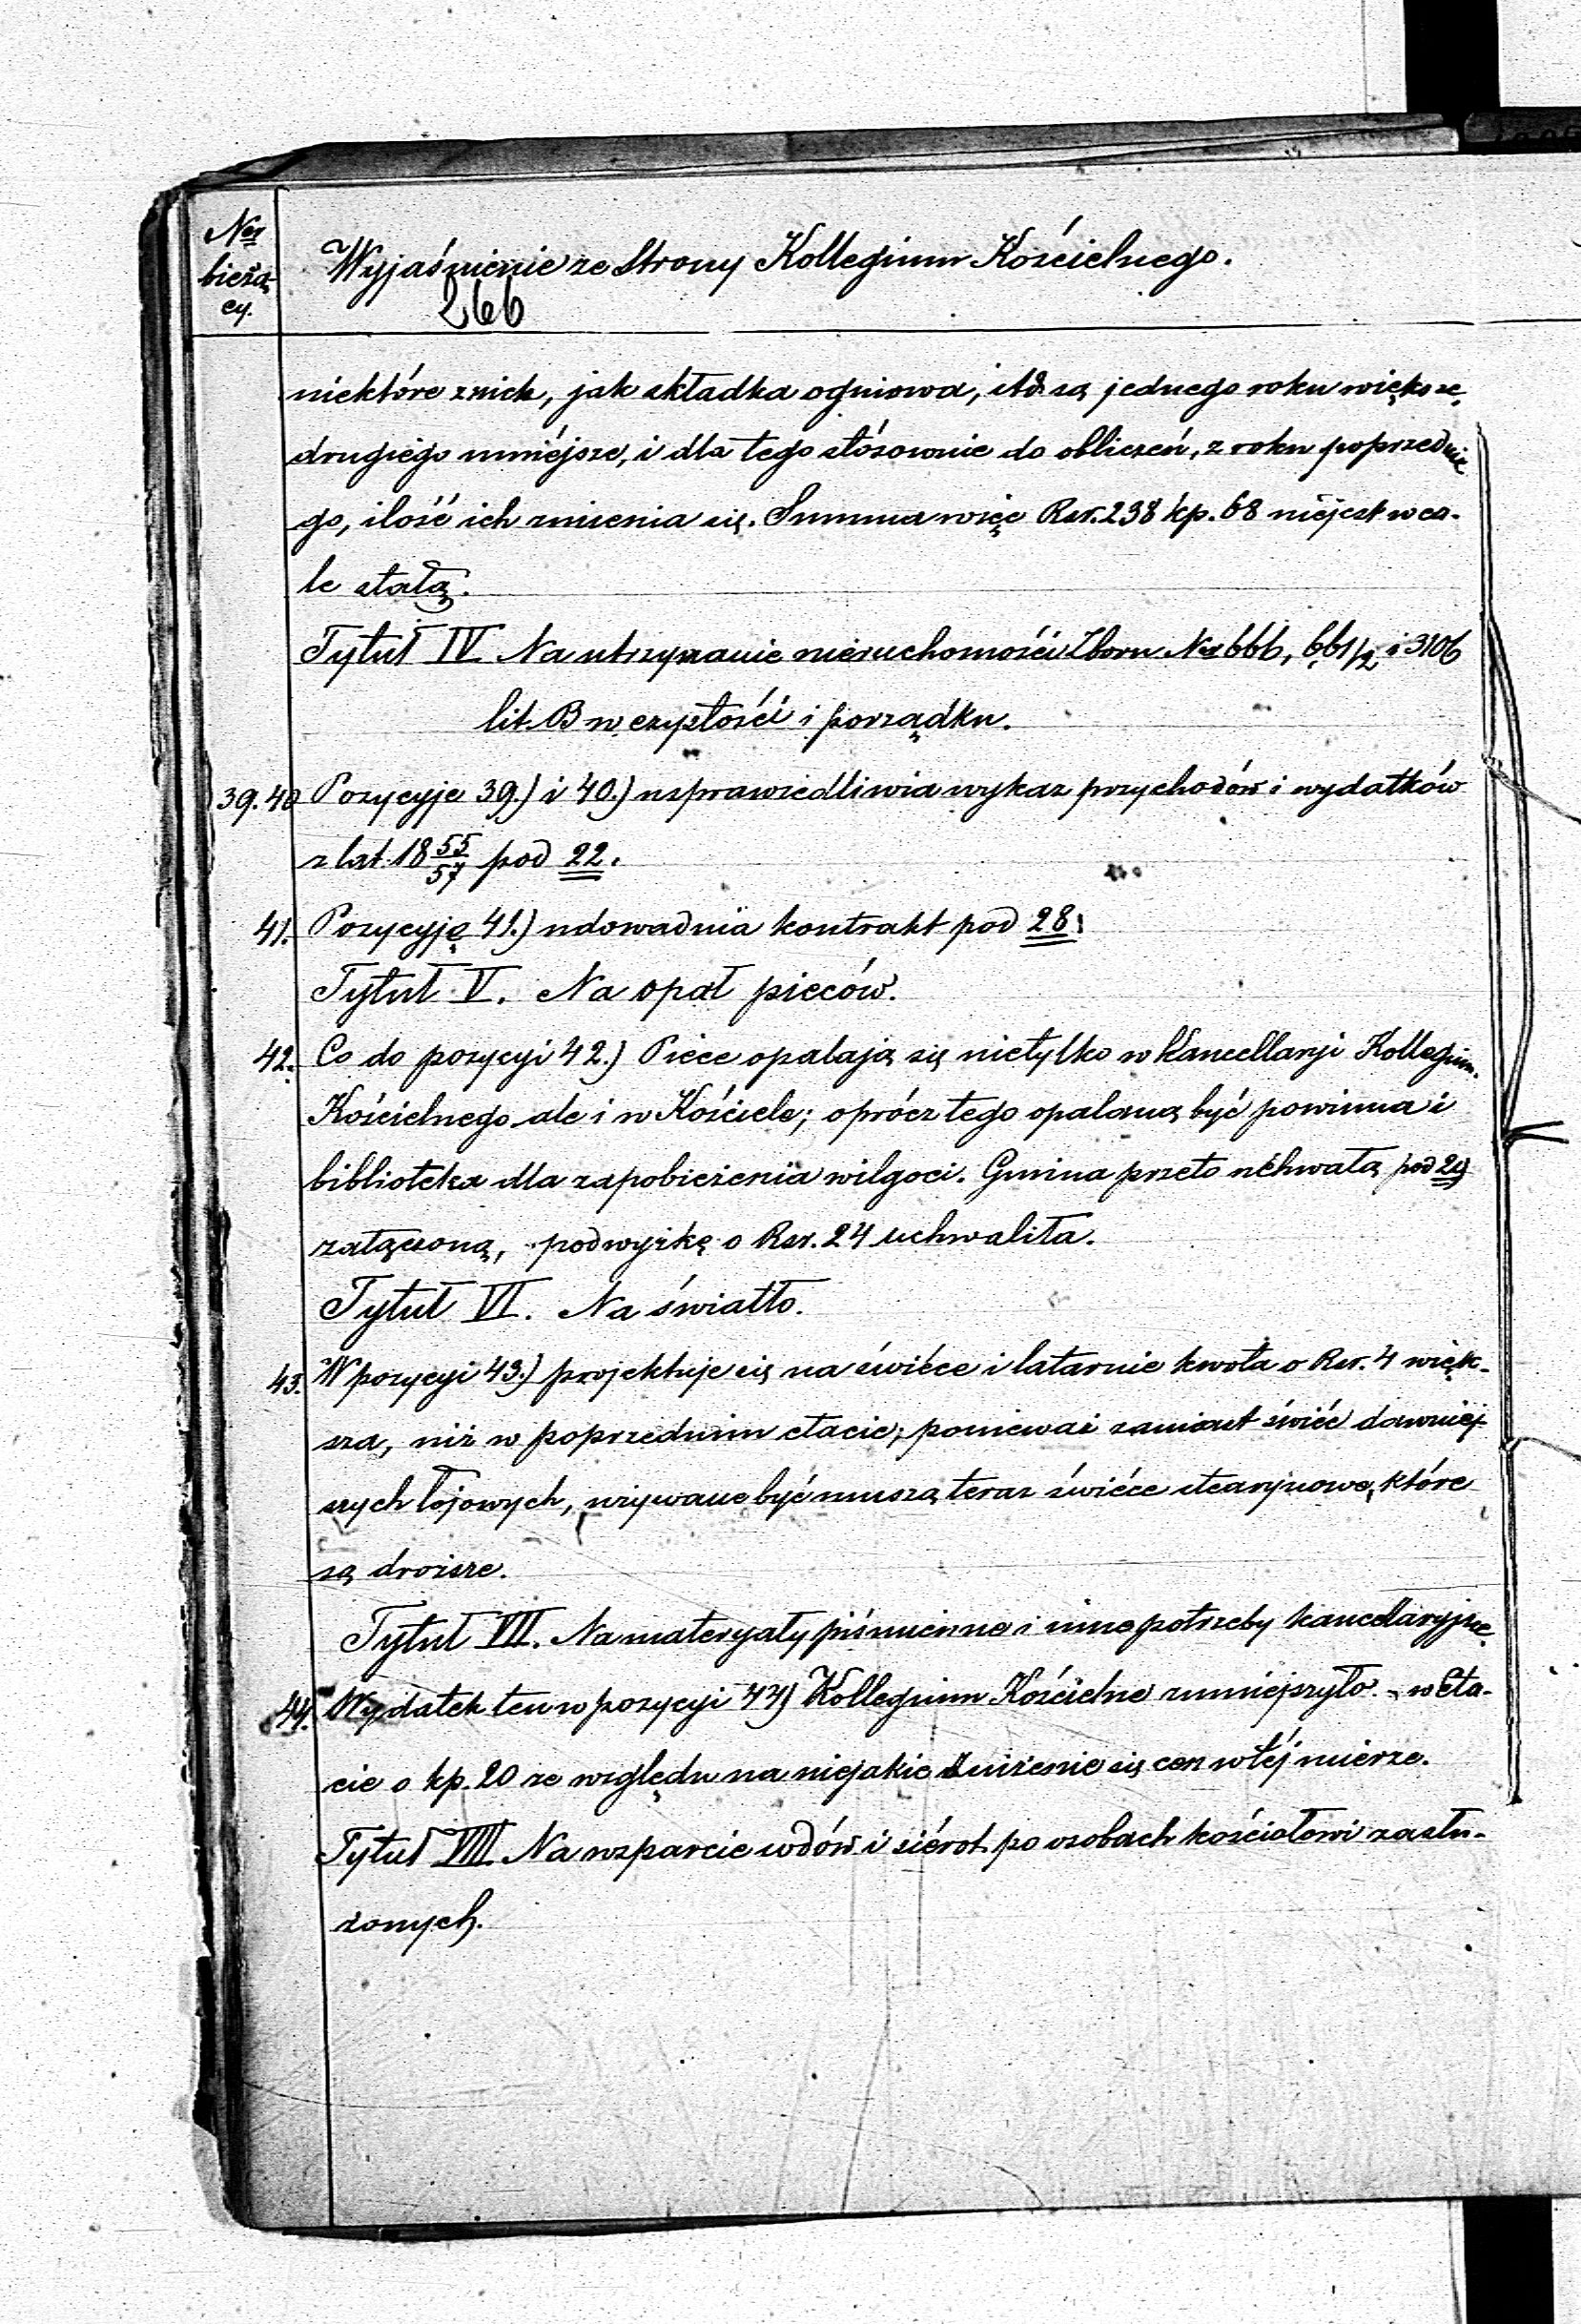 Ner
bieżą-
cy.
Wyjaśnienie ze Strony Kollegium Kościelnego.
266
niektóre z nich, jak składka ogniowa, itd. są jednego roku większe,
drugiego mniéjsze, i dla tego stósownie do obliczeń, z roku poprzednie
go, ilość ich zmienia się. Summa więc Rsr. 238 kp. 68 niejest wca-
le stałą.
Tytuł IV Na utrzymanie nieruchomości Zboru Ner 666, 661/2 i 3106
lit. B w czystości i porządku.
39. 40 Pozycyje 39.) i 40.) usprawiedliwia wykaz przychodów i wydatków
z lat 18 55/57 pod 22.
41. Pozycyję 41.) udowadnia kontrakt pod 28.
Tytuł V. Na opał pieców.
42. Co do pozycyi 42.) Piece opalają się nietylko w Kancellaryi Kollegium
Kościelnego ale i w Kościele; oprócz tego opalaną być powinna i
biblioteka dla zapobieżenia wilgoci. Gmina przeto uchwałą pod 29
załączoną, podwyżkę o Rsr. 24 uchwaliła.
Tytuł VI. Na światło.
43. W pozycyi 43.) projektuje się na świéce i latarnie kwota o Rsr. 4 więk-
sza, niż w poprzednim etacie; ponieważ zamiast świéc dawniej-
szych łojowych, używane być muszą teraz świéce stearynowe, które
są droższe.
Tytuł VII. Na materyały piśmienne i inne potrzeby kancellaryjne.
44. Wydatek ten w pozycyi 44) Kollegium Kościelne zmniejszyło w Eta-
cie o kp. 20 ze względu na niejakie zniżenie się cen w téj mierze.
Tytuł VIII Na wsparcie wdów i siérot po osobach kościołowi zasłu-
żonych.